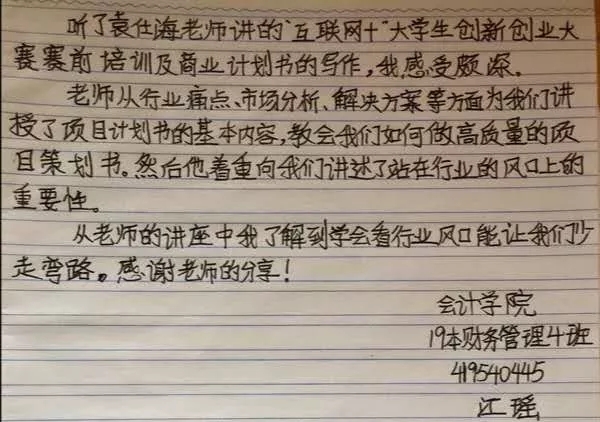 听了袁仕海老师讲的"互联网+"大学生创新创业大
赛赛前培训及商业计划书的写作,我感受颇深。
老师从行业痛点、市场分析、解决方案等方面为我们讲
授了项目计划书的基本内容,教会我们如何做高质量的项
目策划书。然后他着重向我们讲述了站在行业的风口上的
重要性。
从老师的讲座中我了解到学会看行业风口能让我们少
走弯路。感谢老师的分享!
会计学院
19本财务管理4班
419540445
江瑶